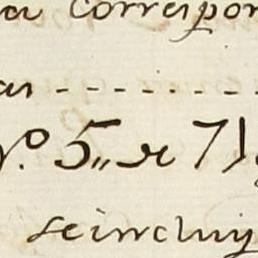 a correspon
as - - - - - - -
N.º 5,, a 7)
se incluy